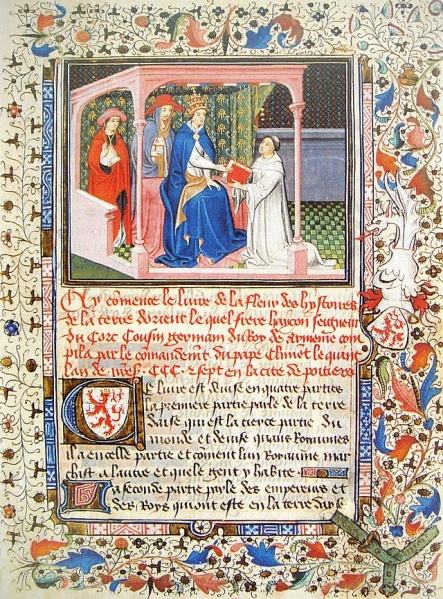 Cy cōmence le livre de la fleur des hystoires
de la terre dorient le quel frere haycon seigneur
du Corc Cousin germain du Roy de armenie com
pila par le comandemēt du pape Climēt le quint
lan de CCC. 7 sept en la cite de poitiers
Ce livre est devise en quatre parties
la premiere partie parle de la terre
dasie qui est la tierce partie du
monde et devise quans Royaumes
il a en celle partie et cōment lun Royaume mar
chist a lautre et quele gent y habite
La seconde partie parle des empereurs et
des Roys qui ont este en la terre dasie